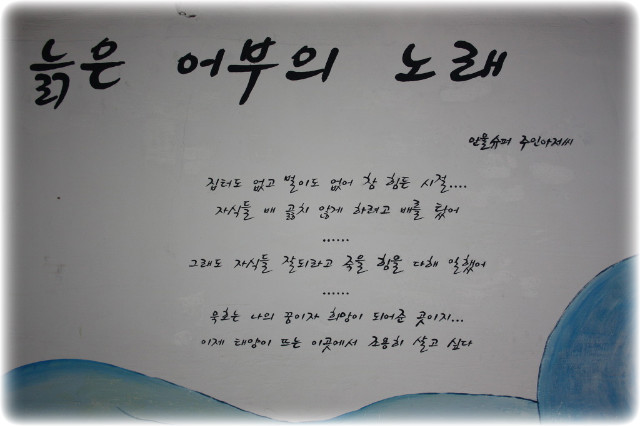 늙은 어부의 노래
만물슈퍼 주인아저씨
집터도 없고 벌이도 없어 참 힘든 시절....
자식들 배 곯지 않게 하려고 배를 탔어
......
그래도 자식들 잘되라고 죽을 힘을 다해 일했어
......
묵호는 나의 꿈이자 희망이 되어준 곳이지...
이제 태양이 뜨는 이곳에서 조용히 살고 싶다